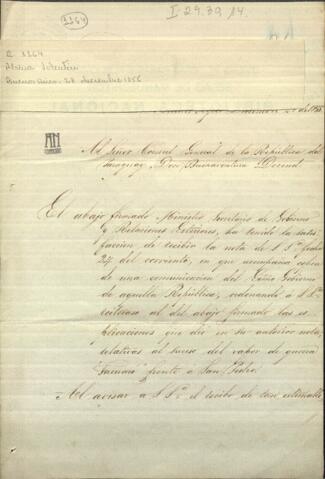 2264
I-29.30.14.
C 2264
Alsina Valentin
Buenos Aires, 28 diciembre 1856
AN
Al Señor Consul General de la República del
Paraguay Don Buenaventura Decoud
El abajo firmado Ministro Secretario de Gobierno
y Relaciones Exteriores, ha tenido la satis
faccion de recibir la nota de S. Sª fecha
27 del corriente, en que acompaña copia
de una comunicacion del Exmo Gobierno
de aquella República, ordenando á S. Sª
reiterase al del abajo firmado las es
plicaciones que dió en su anterior nota,
relativas al suceso del vapor de guerra
frente a San Pedro.
Al avisar a S. Sª el recibo de tan estimable